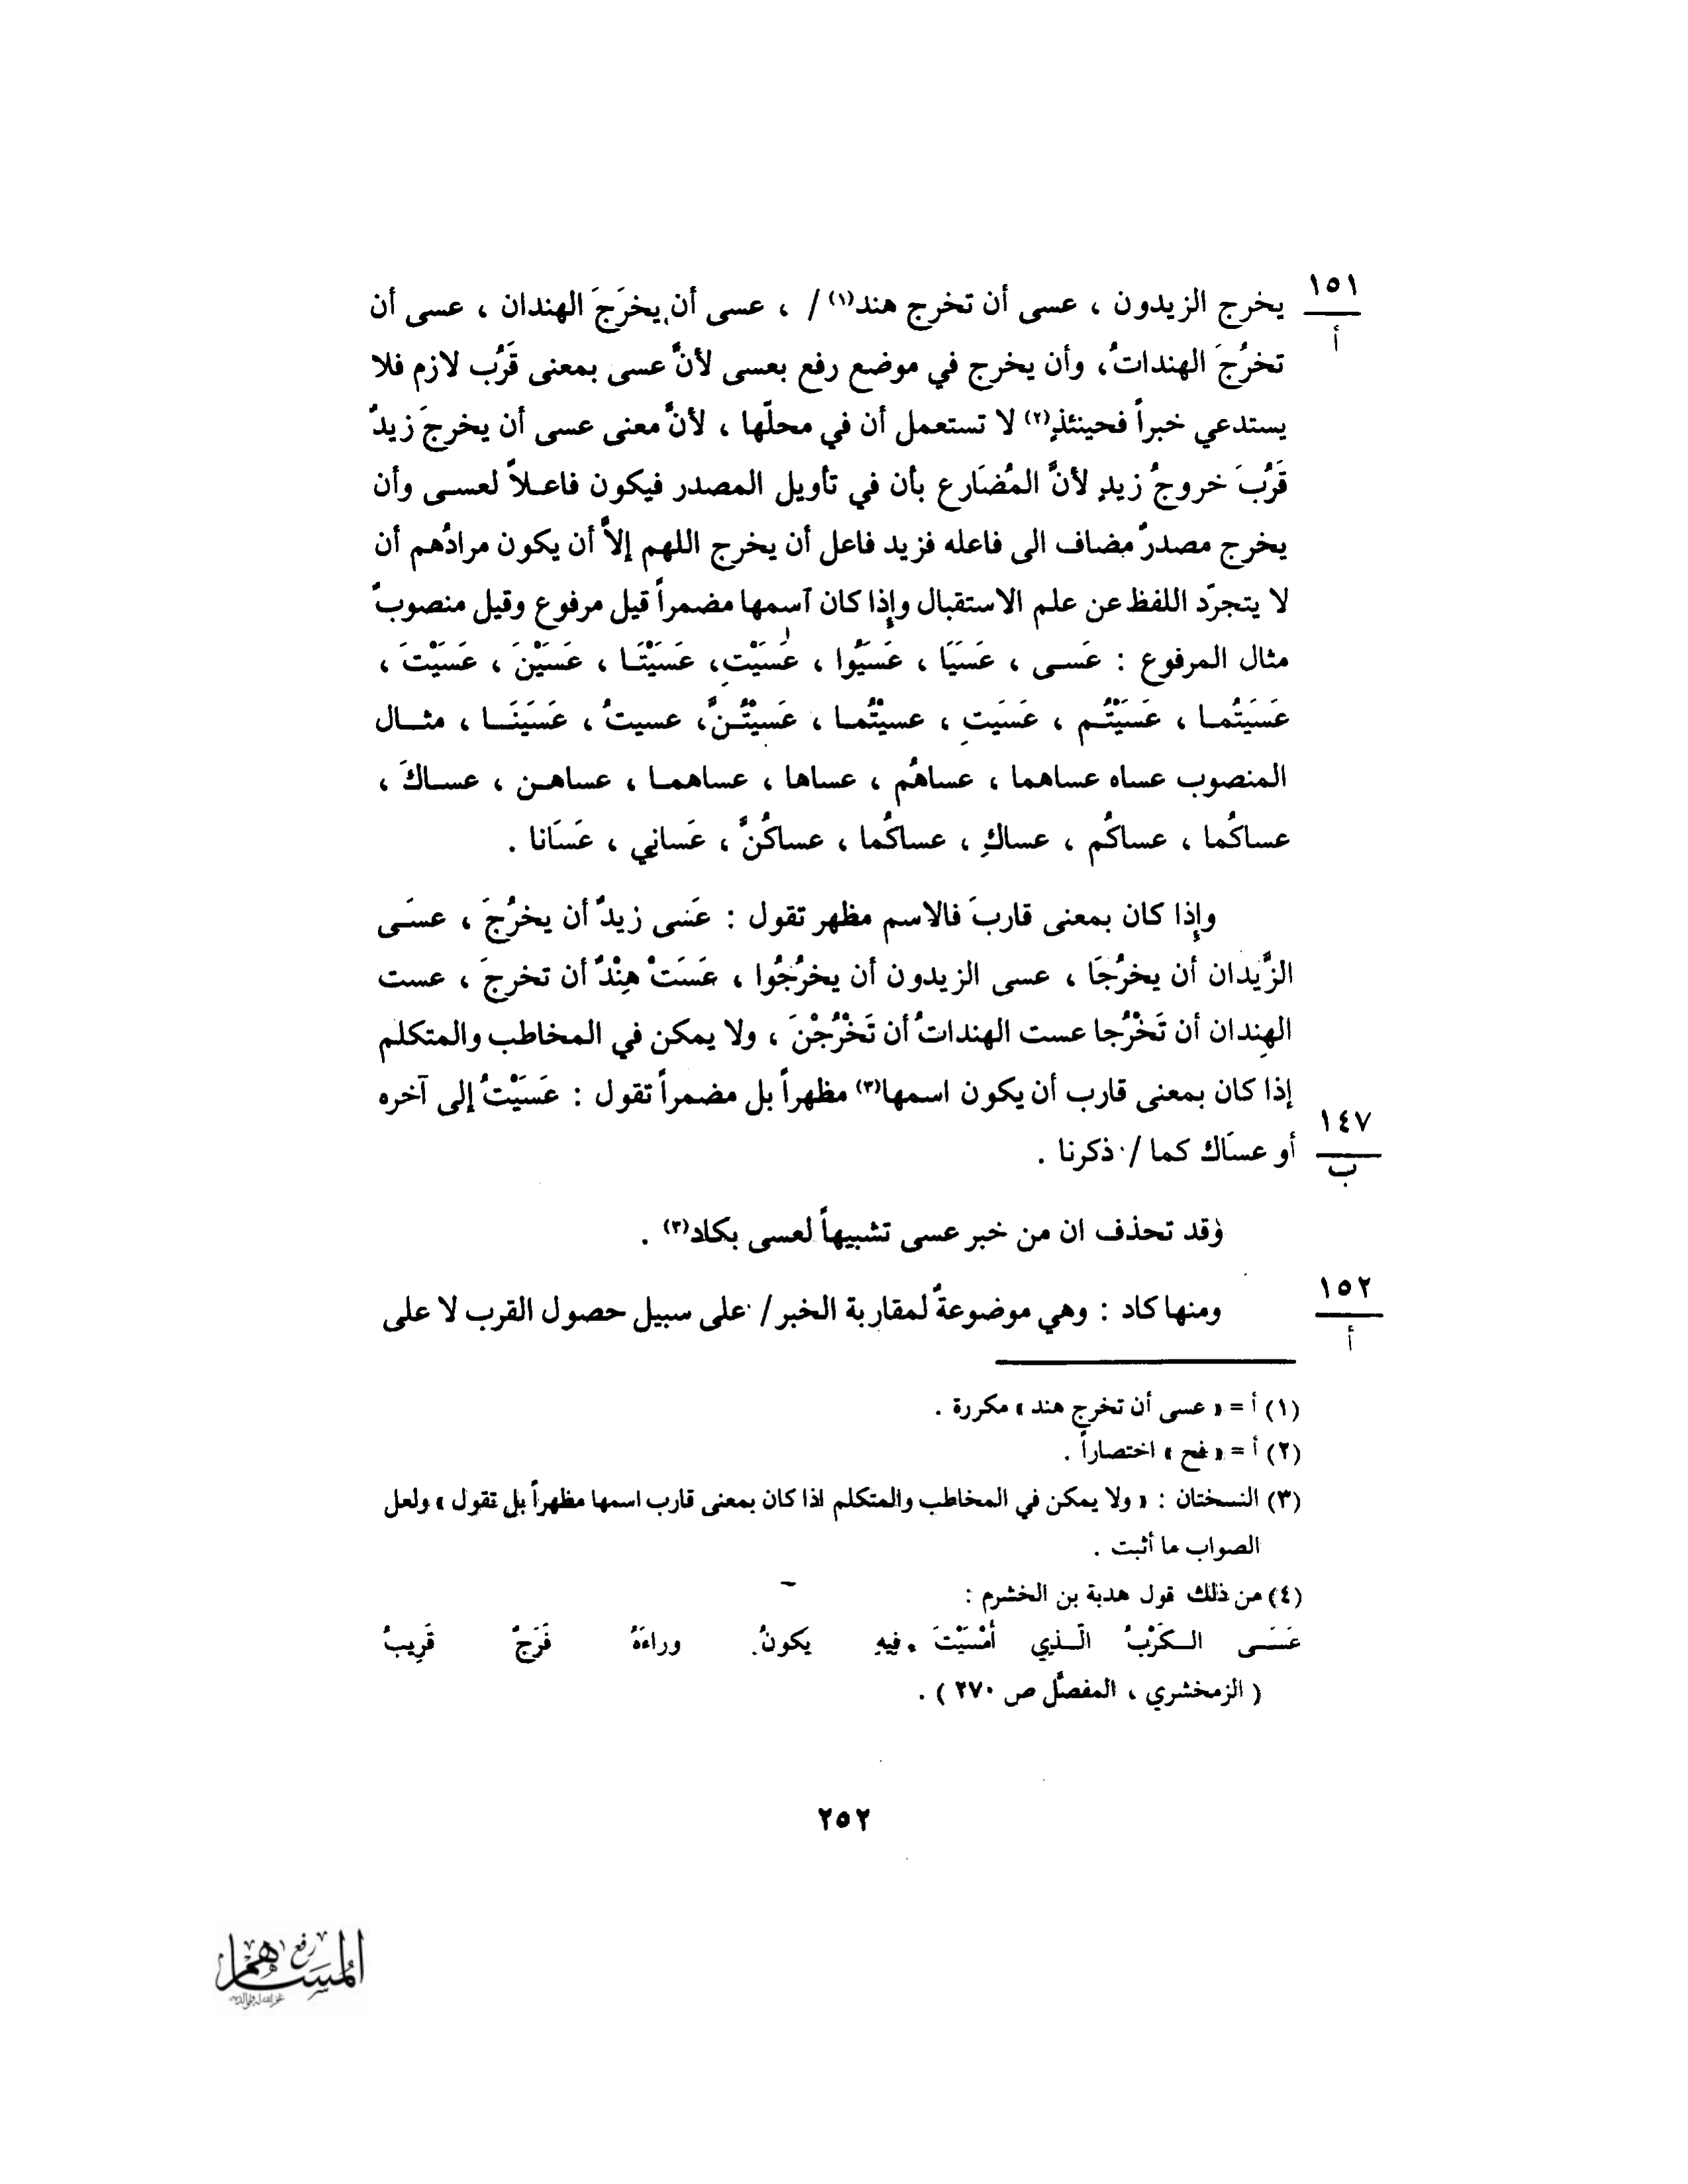 ١٥١
أ
يخرج الزيدون ، عسى أن تخرج هند(١) / ، عسى أن يخرَجَ الهندان ، عسى أن
تخرُجَ الهنداتُ ، وأن يخرج في موضع رفع بعسى لأنَّ عسى بمعنى قَرُب لازم فلا
يستدعي خبراً فحينئذٍ(٢) لا تستعمل أن في محلّها ، لأنَّ معنى عسى أن يخرجَ زيدٌ
قَرُبَ خروجُ زيدٍ لأنَّ المُضَارع بأن في تأويل المصدر فيكون فاعلاً لعسى وأن
يخرج مصدرٌ مضاف الى فاعله فزيد فاعل أن يخرج اللهم إلاَّ أن يكون مرادُهم أن
لا يتجرّد اللفظ عن علم الاستقبال وإِذا كان آسمها مضمراً قيل مرفوع وقيل منصوبٌ
مثال المرفوع : عَسى ، عَسَيَا ، عَسَيُوا ، عَسَيْتِ ، عَسَيْتَا ، عَسَيْنَ ، عَسَيْتَ ،
عَسَيَتُما ، عَسَيْتُم ، عَسَيَتِ ، عسيْتُما ، عَسَيْتُنَّ ، عسيتُ ، عَسَيَنَا ، مثال
المنصوب عساه عساهما ، عساهُم ، عساها ، عساهما ، عساهن ، عساكَ ،
عساكُما ، عساكُم ، عساكِ ، عساكُما ، عساكُنَّ ، عَساني ، عَسَانا .
وإِذا كان بمعنى قاربَ فالاسم مظهر تقول : عَسى زيدٌ أن يخرُجَ ، عسَى
الزَّيدان أن يخرُجَا ، عسى الزيدون أن يخرُجُوا ، عَسَتْ هِنْدٌ أن تخرجَ ، عست
الهندان أن تَخْرُجا عست الهنداتُ أن تَخْرُجْنَ ، ولا يمكن في المخاطب والمتكلم
إذا كان بمعنى قارب أن يكون اسمها(٣) مظهراً بل مضمراً تقول : عَسَيْتُ إلى آخره
١٤٧
ب
أو عسَاك كما / ذكرنا .
وقد تحذف ان من خبر عسى تشبيهاً لعسى بكاد(٣) .
١٥٢
أ
ومنها كاد : وهي موضوعةٌ لمقاربة الخبر / على سبيل حصول القرب لا على
(١) أ = « عسى أن تخرج هند » مكررة .
(٢) أ = « فح » اختصاراً .
(٣) النسختان : « ولا يمكن في المخاطب والمتكلم اذا كان بمعنى قارب اسمها مظهراً بل تقول » ولعل
الصواب ما أثبت .
(٤) من ذلك قول هدبة بن الخشرم :
عَسَى الكَرْبُ الّذِي أَمْسَيْتَ فِيهِ يَكونُ وراءَهُ فَرَجٌ قَرِيبُ
( الزمخشري ، المفصَّل ص ٢٧٠ ) .
٢٥٢
رفع
المساهم
غفر الله له ولوالديه